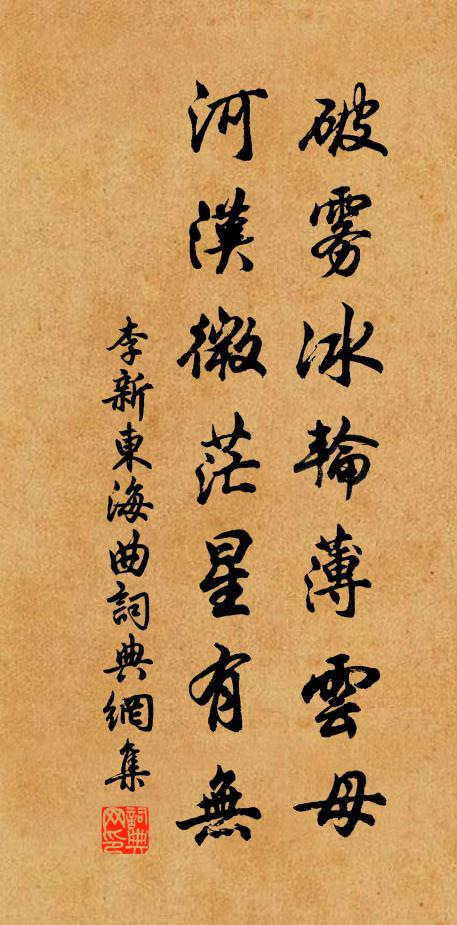 破雾冰輪薄雲母
河漢微茫星有無
李新東海曲詞典網集
詞典
网印